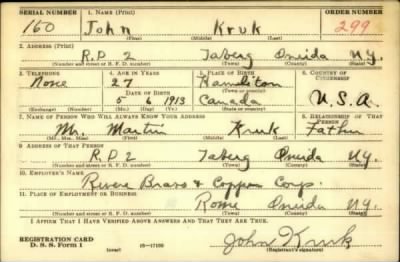 SERIAL NUMBER 1. NAME (Print) ORDER NUMBER
160 John Kruk 299
(First) (Middle) (Last)
2. ADDRESS (Print)
R.D 2 Taberg Oneida N.Y.
(Number and street or R. F. D. number) (Town) (County) (State)
3. TELEPHONE 4. AGE IN YEARS 5. PLACE OF BIRTH 6. COUNTRY OF CITIZENSHIP
None 27 Hamilton
DATE OF BIRTH (Town or county)
5 6 1913 Canada U.S.A.
(Exchange) (Number) (Mo.) (Day) (Yr.) (State or country)
7. NAME OF PERSON WHO WILL ALWAYS KNOW YOUR ADDRESS 8. RELATIONSHIP OF THAT PERSON
Mr. Martin Kruk Father
(Mr., Mrs., Miss) (First) (Middle) (Last)
9. ADDRESS OF THAT PERSON
R.D 2 Taberg Oneida N.Y.
(Number and street or R. F. D. number) (Town) (County) (State)
10. EMPLOYER'S NAME
Revere Brass & Copper Corp.
11. PLACE OF EMPLOYMENT OR BUSINESS
Rome Oneida N.Y.
(Number and street or R. F. D. number) (Town) (County) (State)
I AFFIRM THAT I HAVE VERIFIED ABOVE ANSWERS AND THAT THEY ARE TRUE.
REGISTRATION CARD
D. S. S. Form 1 (over) 16-17105 John Kruk
(Registrant's signature)